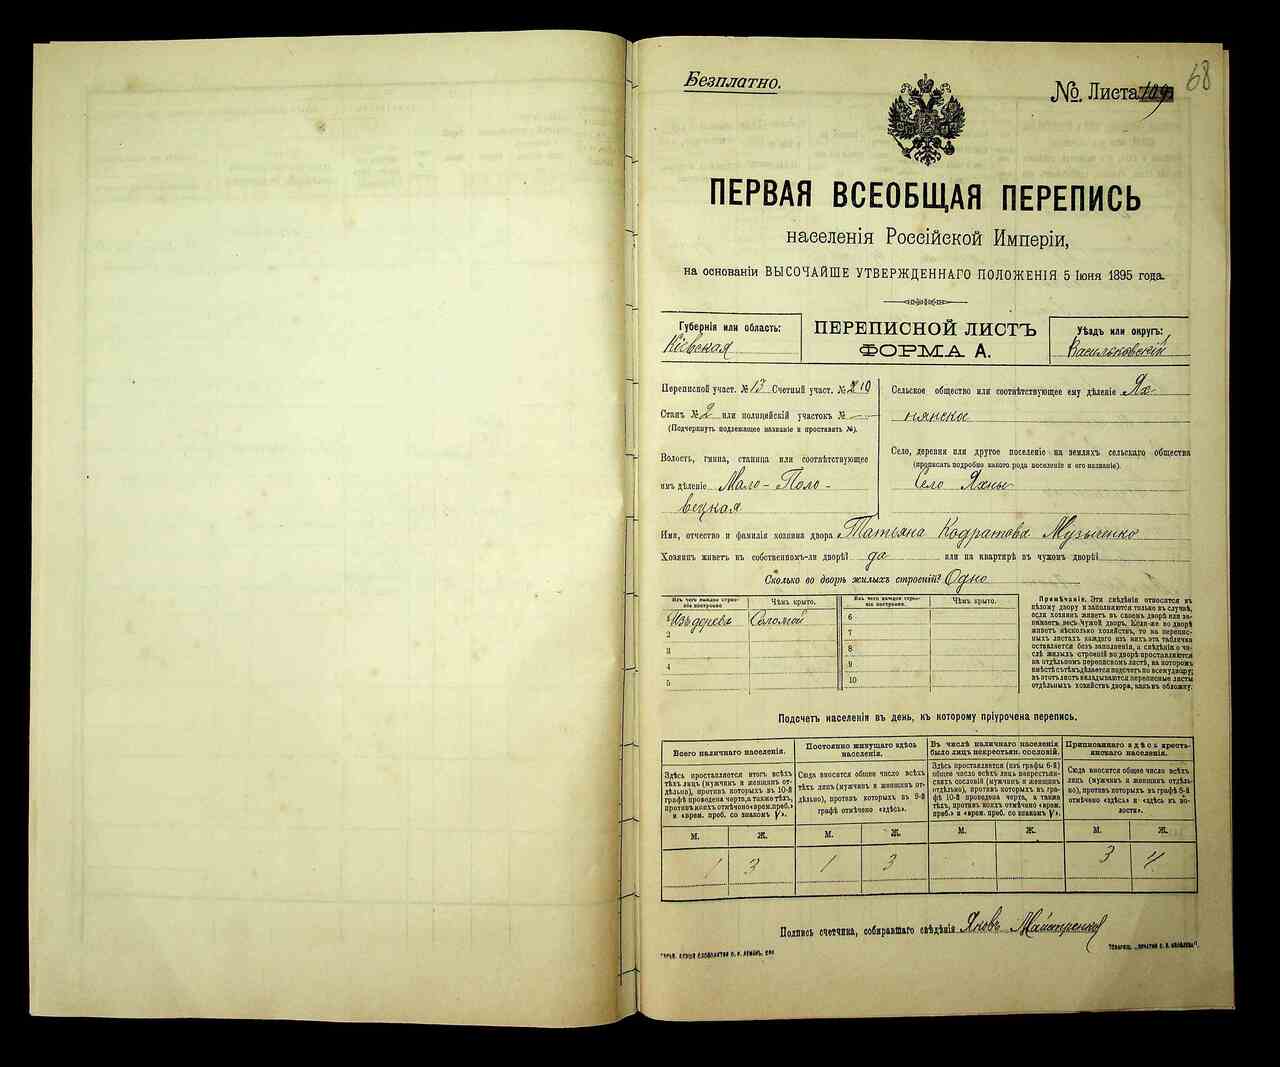 68
Безплатно.
№ Листа 109
ПЕРВАЯ ВСЕОБЩАЯ ПЕРЕПИСЬ
населенія Россійской Имперіи,
на основаніи ВЫСОЧАЙШЕ УТВЕРЖДЕННАГО ПОЛОЖЕНІЯ 5 Іюня 1895 года.
Губернія или область:
Кіевская
ПЕРЕПИСНОЙ ЛИСТЪ
ФОРМА А.
Уѣздъ или округъ:
Васильковскій
Переписной участ. № 13 Счетный участ. № 10
Станъ № 2 или полицейскій участокъ № —
(Подчеркнуть подлежащее названіе и проставить №).
Волость, гмина, станица или соотвѣтствующее
имъ дѣленіе Мало-Поло-
вецкая
Сельское общество или соотвѣтствующее ему дѣленіе Ях-
нянское
Село, деревня или другое поселеніе на земляхъ сельскаго общества
(прописать подробно какого рода поселеніе и его названіе).
Село Яхны
Имя, отчество и фамилія хозяина двора Татьяна Кодратова Музыченко
Хозяинъ живетъ въ собственномъ-ли дворѣ? да или на квартирѣ въ чужомъ дворѣ?
Сколько во дворѣ жилыхъ строеній? Одно
Изъ чего каждое строе-
ніе построено
Чѣмъ крыто.
1 Изъ дерева Соломой
2
3
4
5
Изъ чего каждое строе-
ніе построено.
Чѣмъ крыто.
6
7
8
9
10
Примѣчаніе. Эти свѣдѣнія относятся къ
цѣлому двору и заполняются только въ случаѣ,
если хозяинъ живетъ въ своемъ дворѣ или за-
нимаетъ весь чужой дворъ. Если-же во дворѣ
живетъ нѣсколько хозяйствъ, то на перепис-
ныхъ листахъ каждаго изъ нихъ эта табличка
оставляется безъ заполненія, а свѣдѣнія о чи-
слѣ жилыхъ строеній во дворѣ проставляются
на отдѣльномъ переписномъ листѣ, на которомъ
вмѣстѣ съ тѣмъ дѣлается подсчетъ по всему двору;
въ этотъ листъ вкладываются переписные листы
отдѣльныхъ хозяйствъ двора, какъ въ обложку.
Подсчетъ населенія въ день, къ которому пріурочена перепись.
Всего наличнаго населенія.
Здѣсь проставляется итогъ всѣхъ
тѣхъ лицъ (мужчинъ и женщинъ от-
дѣльно), противъ которыхъ въ 10-й
графѣ проведена черта, а также тѣхъ,
противъ коихъ отмѣчено «врем. преб.»
и «врем. преб. со знакомъ V».
Постоянно живущаго здѣсь
населенія.
Сюда вносится общее число всѣхъ
тѣхъ лицъ (мужчинъ и женщинъ от-
дѣльно), противъ которыхъ въ 9-й
графѣ отмѣчено «здѣсь».
Въ числѣ наличнаго населенія
было лицъ некрестьян. сословій.
Здѣсь проставляется (изъ графы 6-й)
общее число всѣхъ лицъ некрестьян-
скихъ сословій (мужчинъ и женщинъ
отдѣльно), противъ которыхъ въ гра-
фѣ 10-й проведена черта, а также
тѣхъ, противъ коихъ отмѣчено «врем.
преб.» и «врем. преб. со знакомъ V».
Приписаннаго здѣсь кресть-
янскаго населенія.
Сюда вносится общее число всѣхъ
лицъ (мужчинъ и женщинъ отдѣль-
но), противъ которыхъ въ графѣ 8-й
отмѣчено «здѣсь» и «здѣсь въ во-
лости».
М. Ж. М. Ж. М. Ж. М. Ж.
1 3 1 3 3 4
Подпись счетчика, собиравшаго свѣдѣнія Яковъ Майстренко